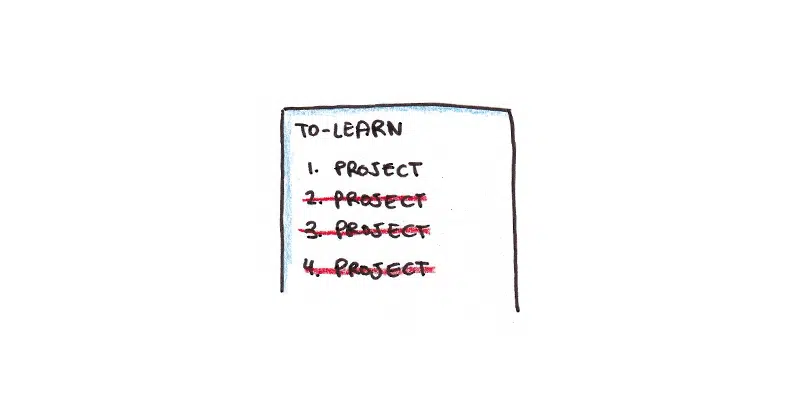 TO-LEARN
1. PROJECT
2. PROJECT
3. PROJECT
4. PROJECT